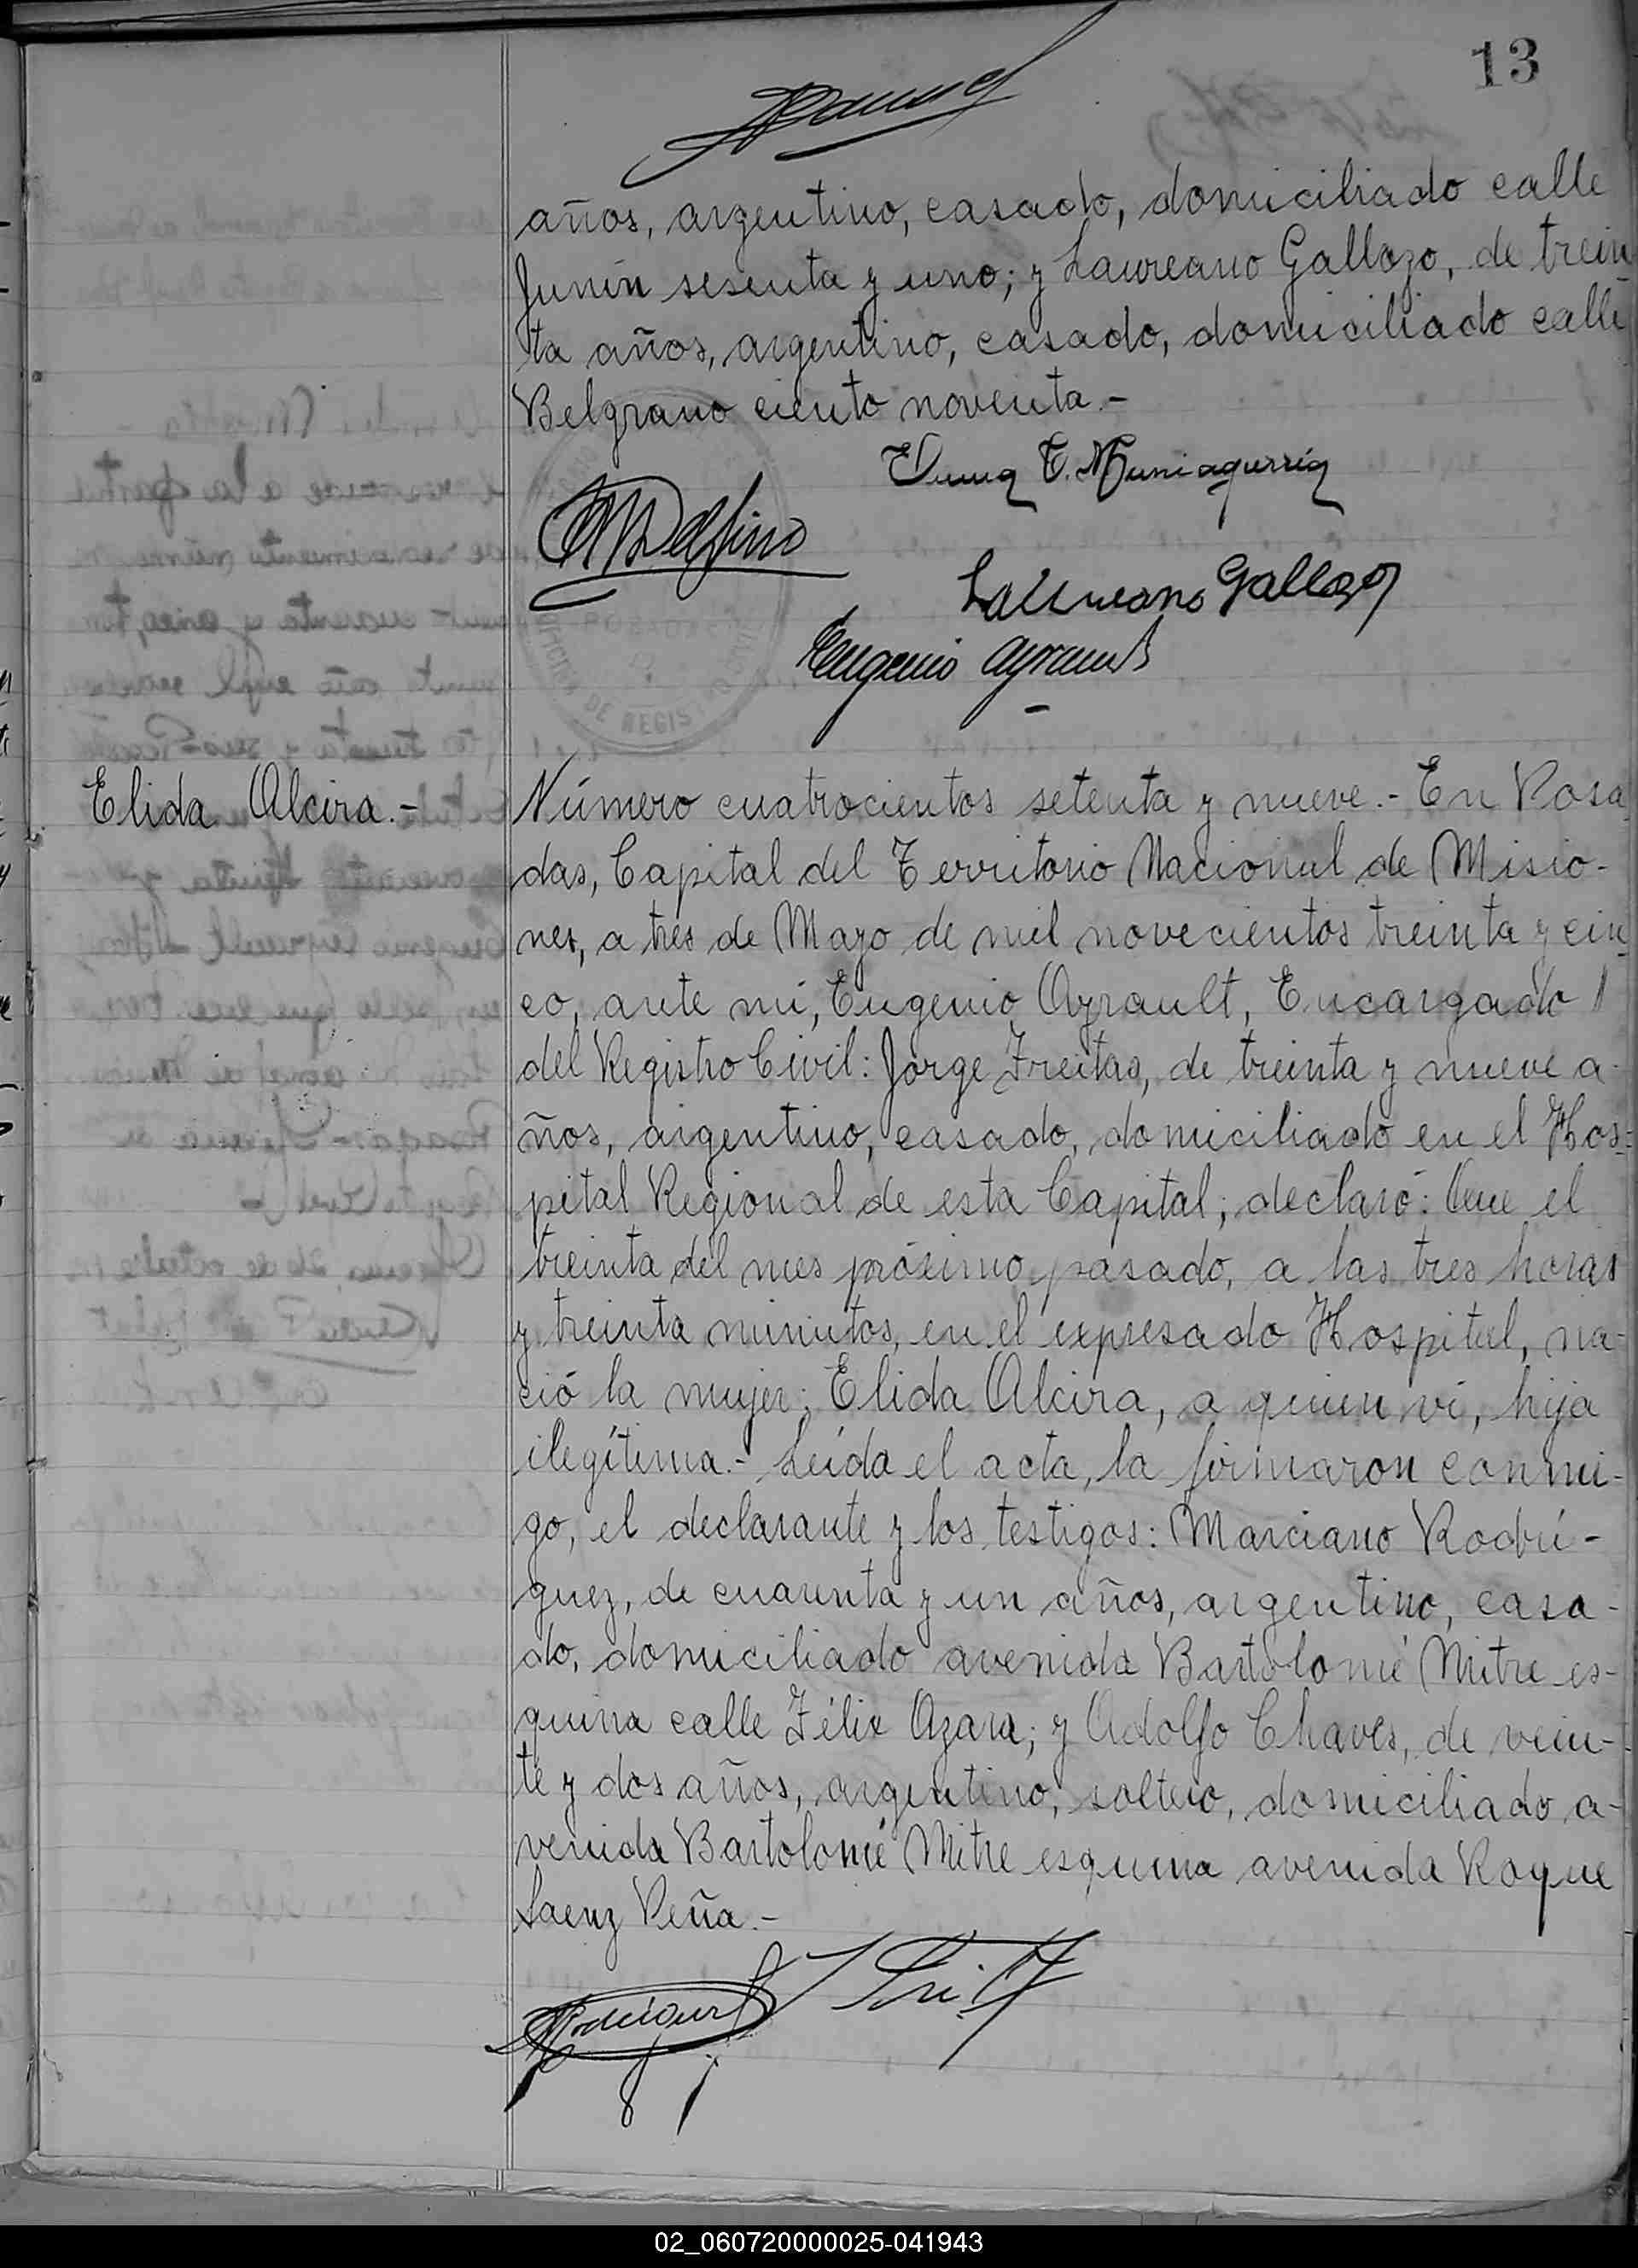 13
años, argentino, casado, domiciliado calle
Junín sesenta y uno; y Laureano Gallozo, de trein
ta años, argentino, casado, domiciliado calle
Belgrano ciento noventa.-
Laureano Gallozo
Eugenio Ayrault
POSADAS
OFICINA DE REGIS
Elida Alcira.-
Número cuatrocientos setenta y nueve.- En Posa
das, Capital del Territorio Nacional de Misio-
nes, a tres de Mayo de mil novecientos treinta y cin
co, ante mí, Eugenio Ayrault, Encargado
del Registro Civil: Jorge Freitas, de treinta y nueve a-
ños, argentino, casado, domiciliado en el Hos=
pital Regional de esta Capital; declaró: Que el
treinta del mes próximo pasado, a las tres horas
y treinta minutos, en el expresado Hospital, na-
ció la mujer: Elida Alcira, a quien ví, hija
ilegítima.- Leída el acta, la firmaron conmi-
go, el declarante y los testigos: Marciano Rodrí-
guez, de cuarenta y un años, argentino, casa-
do, domiciliado avenida Bartolomé Mitre es-
quina calle Félix Azara; y Adolfo Chaves, de vein-
te y dos años, argentino, soltero, domiciliado a-
venida Bartolomé Mitre esquina avenida Roque
Saenz Peña.-
02_060720000025-041943